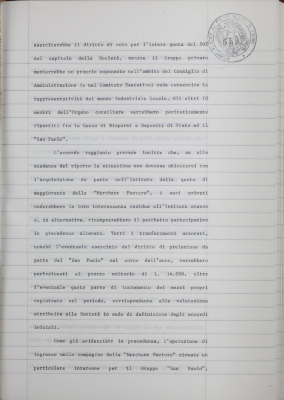 eserciterebbe il diritto di voto per l'intera quota del 50%
del capitale della Società, mentre il Gruppo privato
manterrebbe un proprio esponente nell'ambito del Consiglio di
Amministrazione (e nel Comitato Esecutivo) onde consentire la
rappresentatività del mondo industriale locale. Gli altri 10
membri dell'Organo consiliare verrebbero pariteticamente
ripartiti fra la Cassa di Risparmi e Depositi di Prato ed il
"San Paolo".
L'accordo raggiunto prevede inoltre che, se alla
scadenza del riporto la situazione non dovesse sbloccarsi con
l'acquisizione da parte dell'Istituto della quota di
maggioranza della "Merchant Factors", i soci privati
cederebbero la loro interessenza residua all'Istituto stesso
o, in alternativa, ricomprerebbero il pacchetto partecipativo
in precedenza alienato. Tutti i trasferimenti azionari,
nonché l'eventuale esercizio del diritto di prelazione da
parte del "San Paolo" nel corso dell'anno, verrebbero
perfezionati al prezzo unitario di L. 14.000, oltre
l'eventuale quota parte di incremento dei mezzi propri
registrato nel periodo, corrispondente alla valutazione
attribuita alla Società in sede di definizione degli accordi
iniziali.
Come già evidenziato in precedenza, l'operazione di
ingresso nella compagine della "Merchant Factors" riveste un
particolare interesse per il Gruppo "San Paolo",